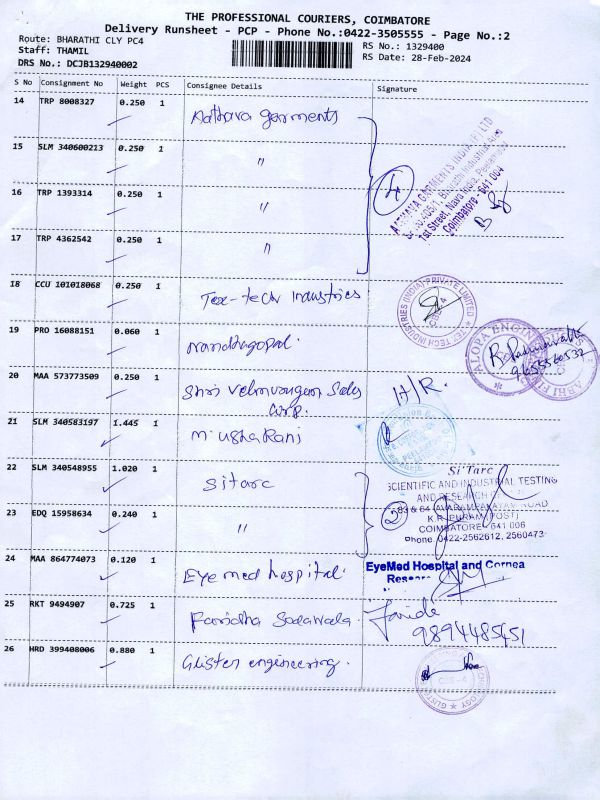 THE PROFESSIONAL COURIERS, COIMBATORE
Delivery Runsheet - PCP - Phone No.:0422-3505555 - Page No.:2
Route: BHARATHI CLY PC4
Staff: THAMIL
DRS No.: DCJB132940002
RS No.: 1329400
RS Date: 28-Feb-2024
S No Consignment No Weight PCS Consignee Details Signature
14 TRP 8008327 0.250 1 Aathava garments
15 SLM 340600213 0.250 1 "
16 TRP 1393314 0.250 1 "
17 TRP 4362542 0.250 1 "
4
1st Street, Nava India,
Coimbatore - 641 004
18 CCU 101018068 0.250 1 Tex-tech Industries
TEX-TECH INDUSTRIES (INDIA) PRIVATE LIMITED
19 PRO 16088151 0.060 1 nandhagopal.
9655560532
20 MAA 573773509 0.250 1 Shri Velmurugan Sales
Corp.
H/R.
21 SLM 340583197 1.445 1 M. Usha Rani
22 SLM 340548955 1.020 1 Sitarc
23 EDQ 15958634 0.240 1 "
2
Si'Tarc
SCIENTIFIC AND INDUSTRIAL TESTING
AND RESEARCH
83 & 84 AVARAMPALAYAM ROAD
K.R. PURAM (POST)
COIMBATORE - 641 006
Phone: 0422-2562612, 2560473
24 MAA 864774073 0.120 1 Eye med hospital.
EyeMed Hospital and Cornea
25 RKT 9494907 0.725 1 Faridha Sodawala.
Faride
9894485451
26 HRD 399408006 0.880 1 Glisten engineering.
CBE - 4